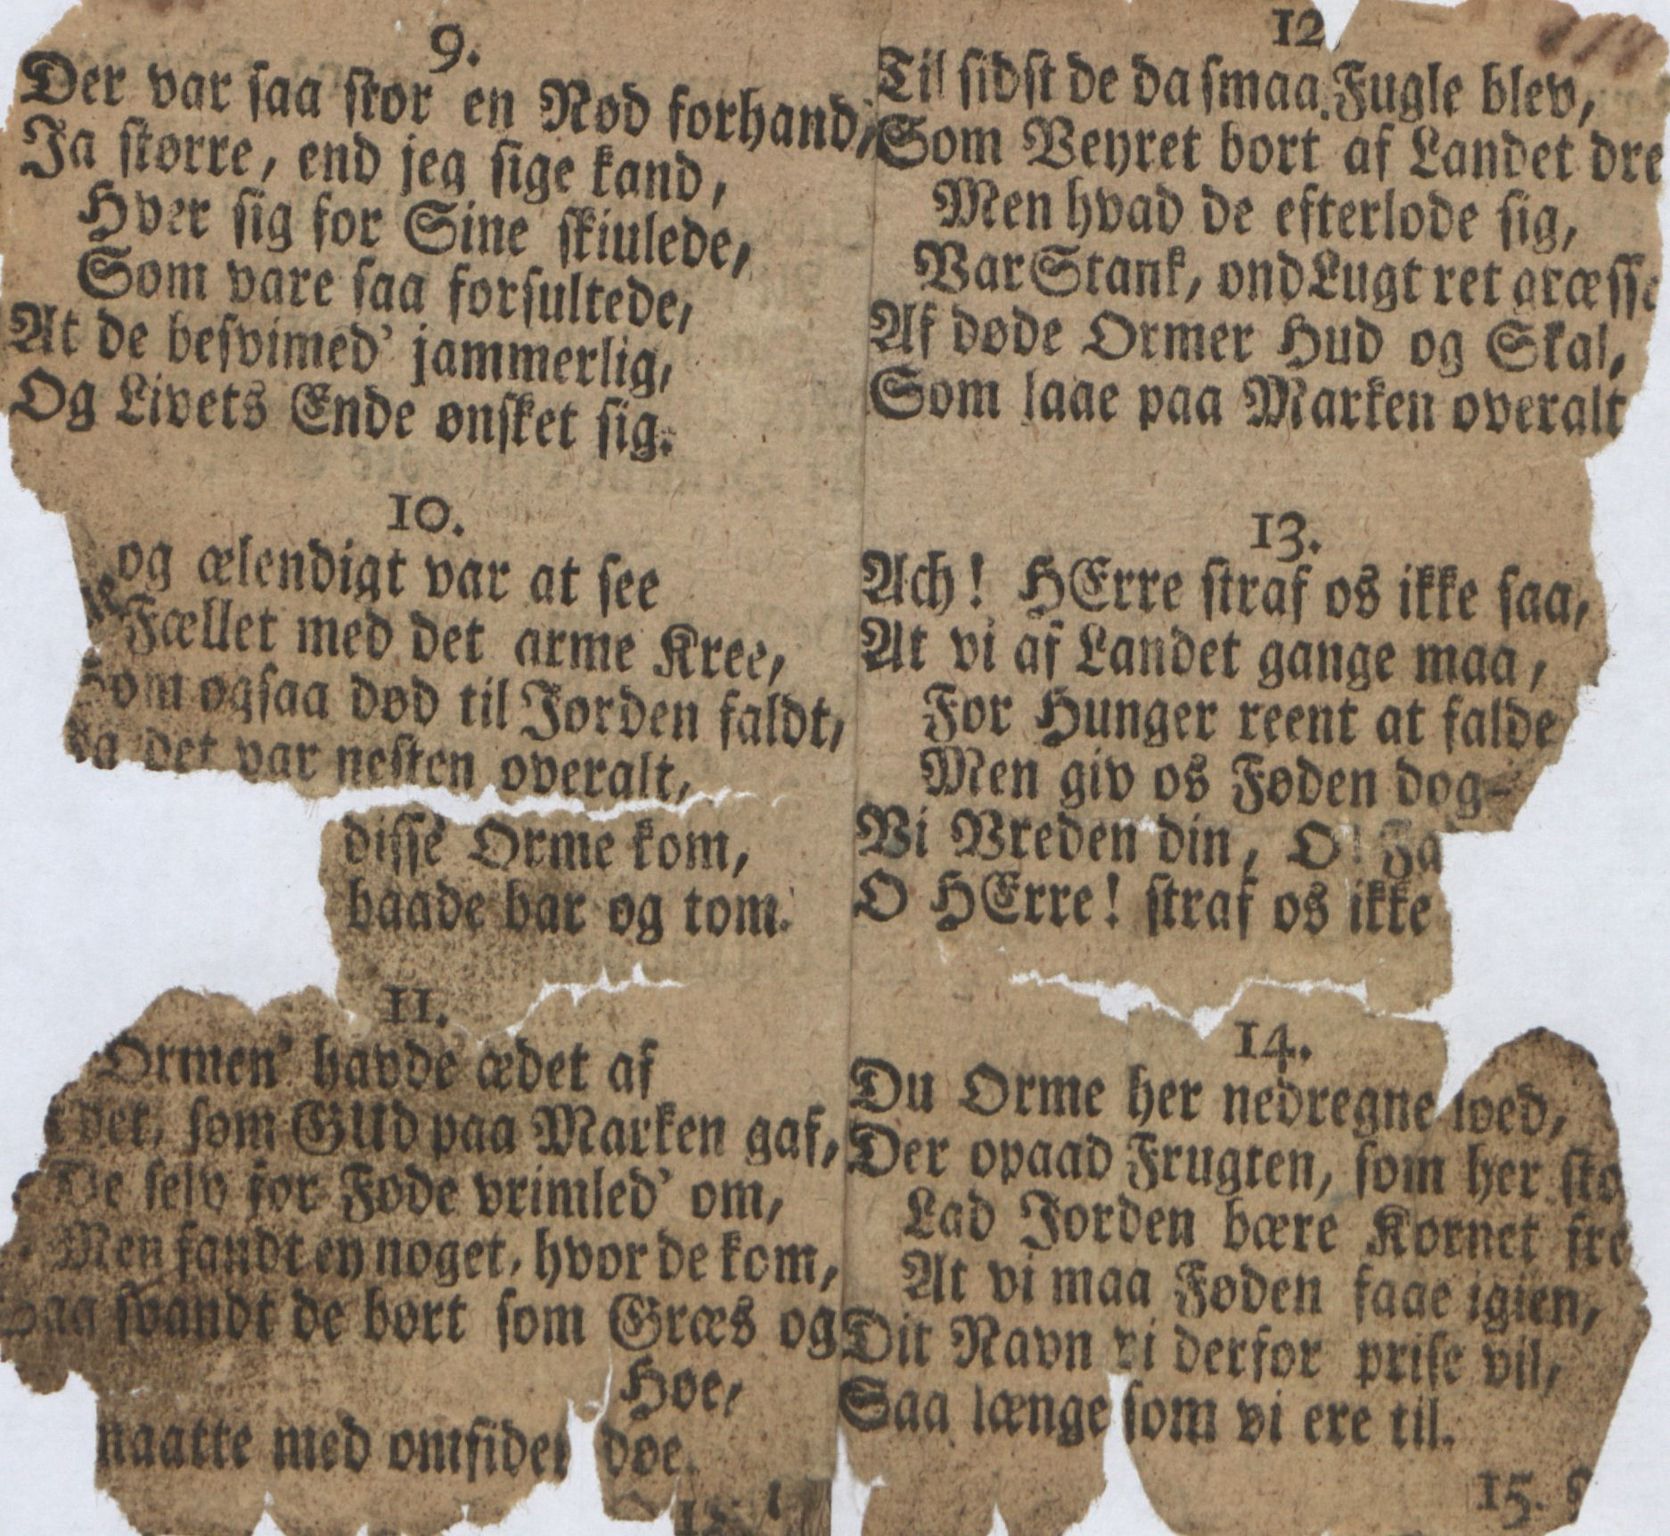 9.
Der var saa stor en Nød forhand,
Ja større, end jeg sige kand,
Hver sig for Sine skiulede,
Som vare saa forsultede,
At de besvimed' jammerlig,
Og Livets Ende ønsket sig.
10.
og ælendigt var at see
Fællet med det arme Kree,
som ogsaa død til Jorden faldt,
det var nesten overalt,
disse Orme kom,
baade bar og tom.
11.
Ormen' havde ædet af
det, som GUd paa Marken gaf,
De selv for Føde vrimled' om,
Men fandt ey noget, hvor de kom,
Saa svandt de bort som Græs og
Høe,
maatte med omsider døe.
12
Til sidst de da smaa Fugle blev,
Som Veyret bort af Landet dre
Men hvad de efterlode sig,
Var Stank, ond Lugt ret græsse
Af døde Ormer Hud og Skal,
Som laae paa Marken overalt
13.
Ach! HErre straf os ikke saa,
At vi af Landet gange maa,
For Hunger reent at falde
Men giv os Føden dog
Vi Vreden din, O! Fa
O HErre! straf os ikke
14.
Du Orme her nedregne lod,
Der opaad Frugten, som her sto
Lad Jorden bære Kornet fre
At vi maa Føden faae igien,
Dit Navn vi derfor prise vil,
Saa længe som vi ere til.
15.